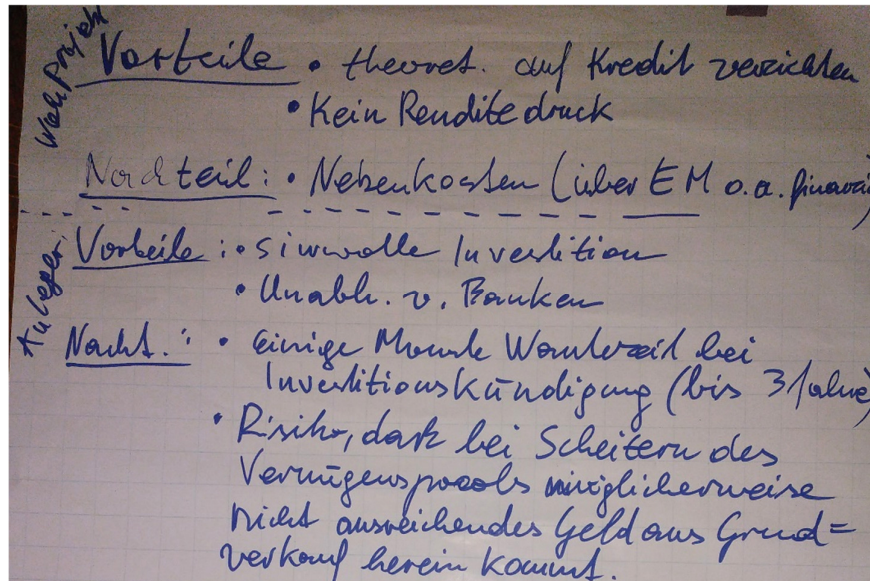 Wohnprojekt
Vorteile • theoret. auf Kredit verzichten
• Kein Renditedruck
Nachteil: • Nebenkosten (über EM o.a. finanz
Anleger:
Vorteile: • sinnvolle Investition
• Unabh. v. Banken
Nacht.: • einige Monate Wartezeit bei
Investitionskündigung (bis 3 Jahre)
• Risiko, daß bei Scheitern des
Vermögenspools möglicherweise
nicht ausreichendes Geld aus Grund=
verkauf herein kommt.